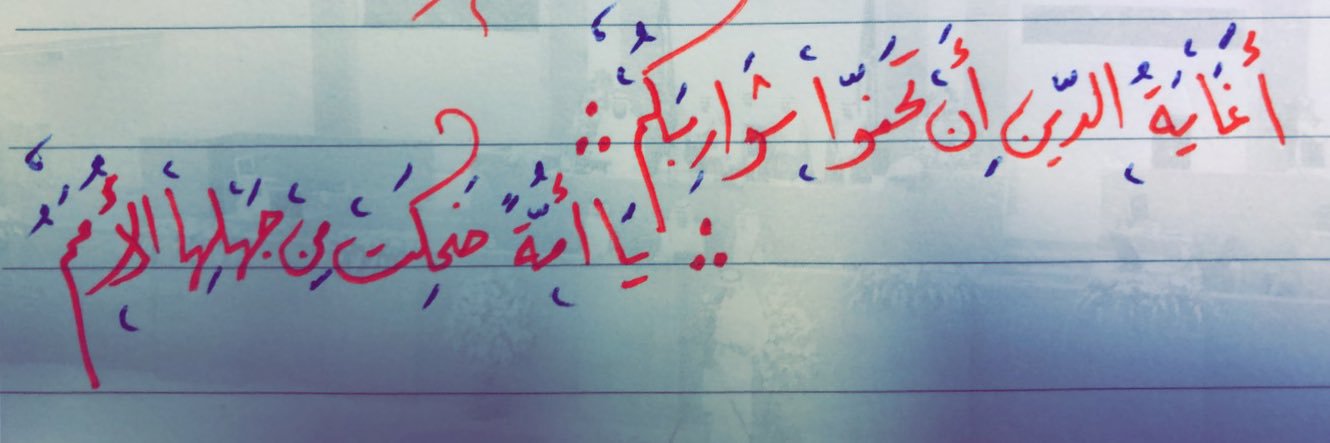 أَغَايَةُ الدِّينِ أَنْ تَحْفُوا شَوَارِبَكُمْ
يَا أُمَّةً ضَحِكَتْ مِنْ جَهْلِهَا الأُمَمُ